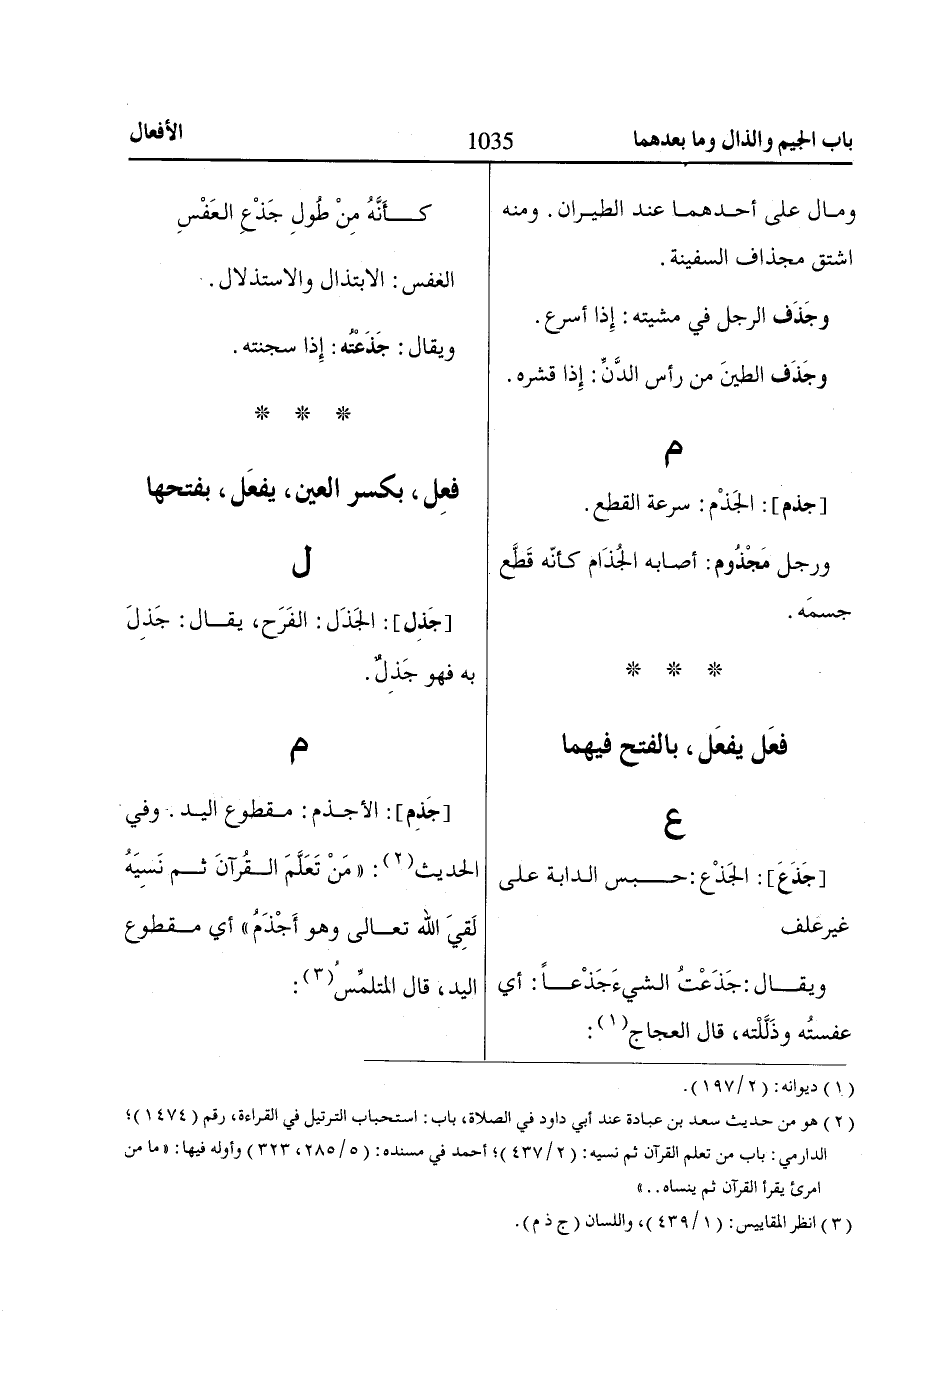 باب الجيم والذال وما بعدهما
1035
الأفعال
ومال على أحدهما عند الطيران. ومنه
اشتق مجذاف السفينة.
وجَذَف الرجل في مشيته: إذا أسرع.
وجَذَف الطينَ من رأس الدَّنِّ: إذا قشره.
م
[جذم]: الجَذْم: سرعة القطع.
ورجل مَجْذُوم: أصابه الجُذَام كأنّه قَطَّع
جسمَه.
* * *
فعَل يفعَل، بالفتح فيهما
ع
[جَذَعَ]: الجَذْع: حبس الدابة على
غير علف
ويقال: جَذَعْتُ الشيءَ جَذْعاً: أي
عفستُه وذَلَّلْته، قال العجاج(١):
كأنَّهُ مِنْ طُولِ جَذْعِ العَفْسِ
العفس: الابتذال والاستذلال.
ويقال: جَذَعْتُه: إذا سجنته.
* * *
فعِل، بكسر العين، يفعَل، بفتحها
ل
[جَذِل]: الجَذَل: الفَرَح، يقال: جَذِلَ
به فهو جَذِلٌ.
م
[جَذِم]: الأجذم: مقطوع اليد. وفي
الحديث(٢): «مَنْ تَعَلَّمَ القُرآنَ ثم نَسِيَهُ
لَقِيَ الله تعالى وهو أَجْذَمُ» أي مقطوع
اليد، قال المتلمِّسُ(٣):
(١) ديوانه: (٢/١٩٧).
(٢) هو من حديث سعد بن عبادة عند أبي داود في الصلاة، باب: استحباب الترتيل في القراءة، رقم (١٤٧٤)؛
الدارمي: باب من تعلم القرآن ثم نسيه: (٢/٤٣٧)؛ أحمد في مسنده: (٥/٢٨٥، ٣٢٣) وأوله فيها: «ما من
امرئ يقرأ القرآن ثم ينساه..»
(٣) انظر المقاييس: (١/٤٣٩)، واللسان (ج ذ م).